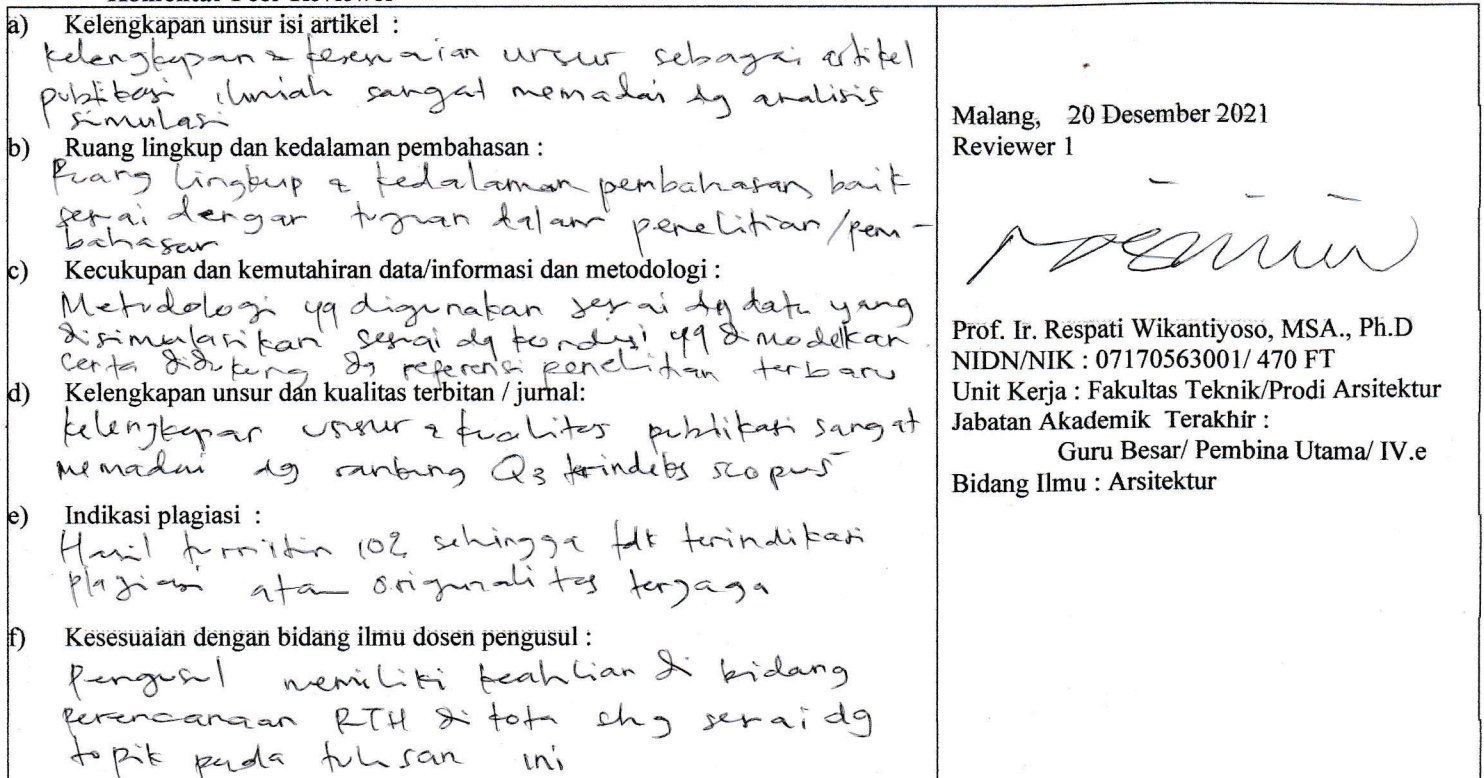 a) Kelengkapan unsur isi artikel :
kelengkapan & kesesuaian unsur sebagai artikel
publikasi ilmiah sangat memadai dg analisis
simulasi
b) Ruang lingkup dan kedalaman pembahasan :
Ruang lingkup & kedalaman pembahasan, baik
sesuai dengan tujuan dalam penelitian/pem-
bahasan
c) Kecukupan dan kemutahiran data/informasi dan metodologi :
Metodologi yg digunakan sesuai dg data yang
disimulasikan sesuai dg kondisi yg dimodelkan
serta didukung dg referensi penelitian terbaru
d) Kelengkapan unsur dan kualitas terbitan / jurnal:
kelengkapan unsur & kualitas publikasi sangat
memadai dg ranking Q3 terindeks scopus
e) Indikasi plagiasi :
Hasil turnitin sehingga tdk terindikasi
plagiasi atau originalitas terjaga
f) Kesesuaian dengan bidang ilmu dosen pengusul :
Pengusul memiliki keahlian di bidang
perencanaan RTH di kota shg sesuai dg
topik pada tulisan ini
Malang, 20 Desember 2021
Reviewer 1
Prof. Ir. Respati Wikantiyoso, MSA., Ph.D
NIDN/NIK : 07170563001/ 470 FT
Unit Kerja : Fakultas Teknik/Prodi Arsitektur
Jabatan Akademik Terakhir :
Guru Besar/ Pembina Utama/ IV.e
Bidang Ilmu : Arsitektur